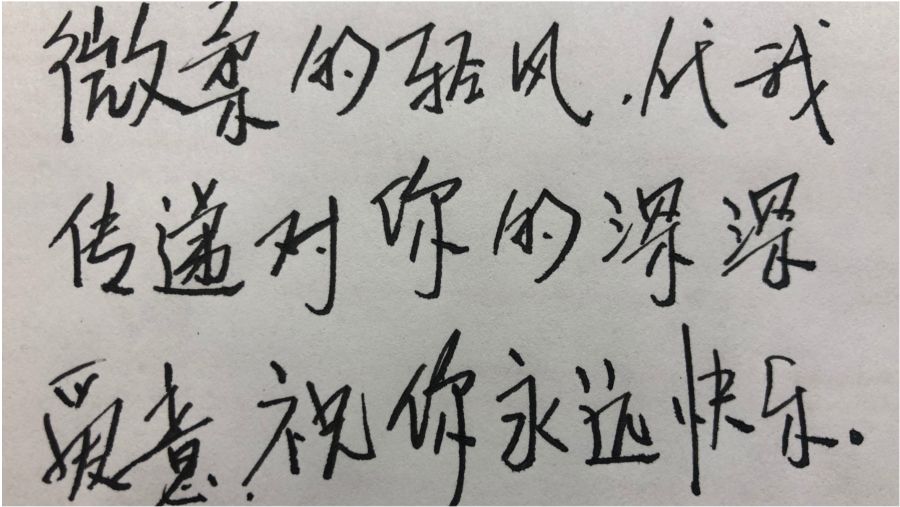 微柔的轻风,代我
传递对你的深深
爱意,祝你永远快乐。